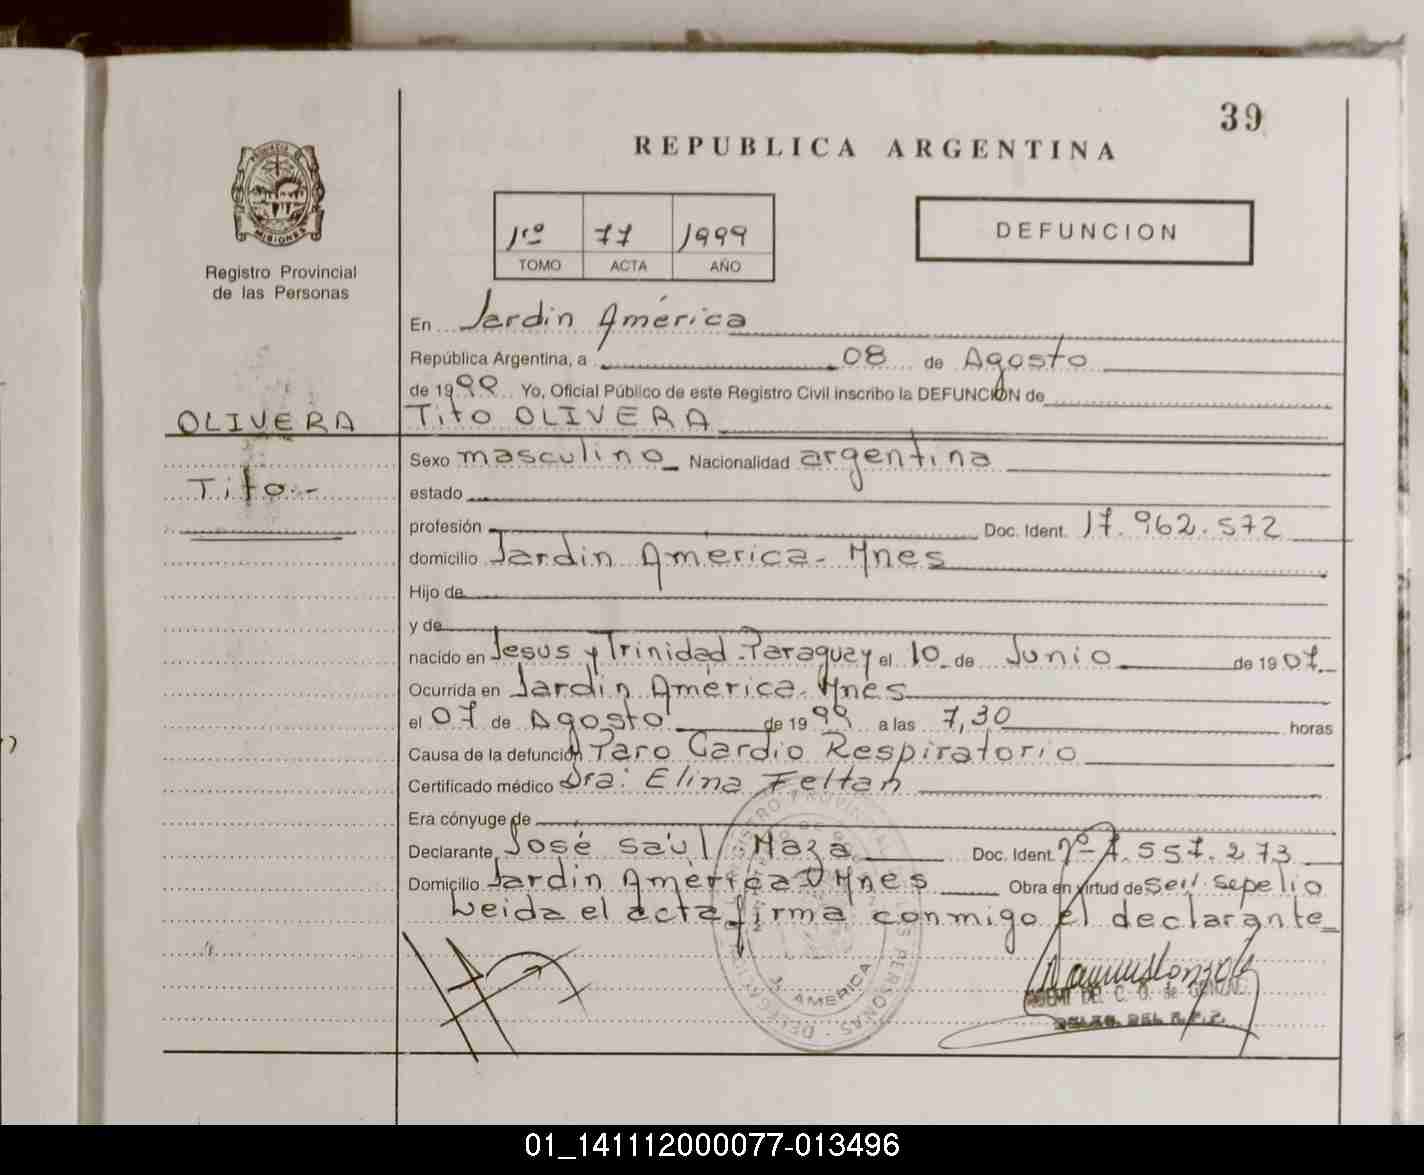 39
REPUBLICA ARGENTINA
PROVINCIA DE
MISIONES
Registro Provincial
de las Personas
1ro 77 1999
TOMO ACTA AÑO
DEFUNCION
En Jardin América
República Argentina, a 08 de Agosto
de 1999 Yo, Oficial Público de este Registro Civil inscribo la DEFUNCION de
OLIVERA Tito OLIVERA
Sexo masculino Nacionalidad argentina
Tito.-
estado
profesión Doc. Ident. 17.962.572
domicilio Jardin America - Mnes
Hijo de
y de
nacido en Jesus y Trinidad - Paraguay el 10 de Junio de 1907
Ocurrida en Jardin América - Mnes
el 07 de Agosto de 1999 a las 7,30 horas
Causa de la defunción Paro Cardio Respiratorio
Certificado médico Dra: Elina Feltan
Era cónyuge de
Declarante José Saúl Maza Doc. Ident. nº 7.557.273
Domicilio Jardin América - Mnes Obra en virtud de Serv. sepelio
Leida el acta firma conmigo el declarante
J. AMERICA
DEL R.P.P.
01_141112000077-013496